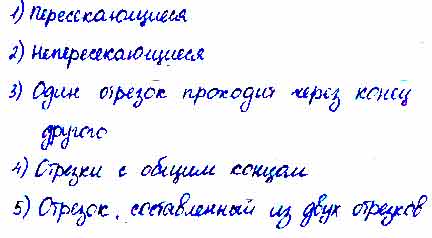 1) Пересекающиеся
2) Непересекающиеся
3) Один отрезок проходит через конец
другого
4) Отрезки с общим концом
5) Отрезок, составленный из двух отрезков